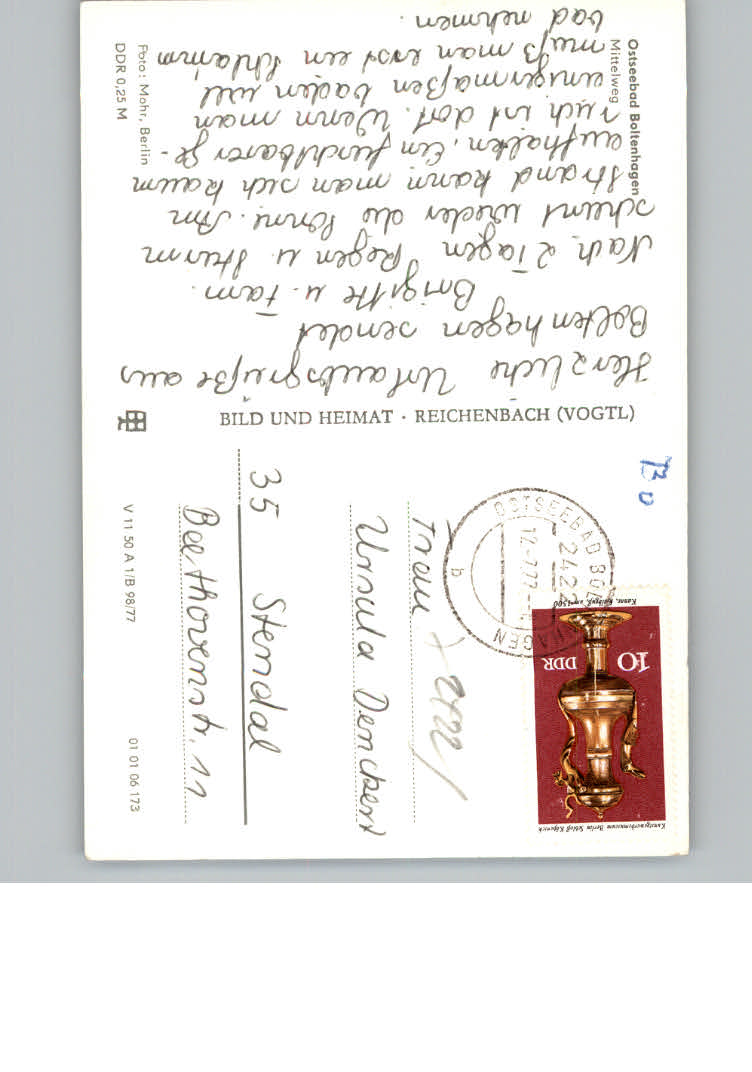 Herzliche Urlaubsgrüße aus
Boltenhagen sendet
Brigitte u. Fam.
Nach 2 Tagen Regen u. Sturm
scheint wieder die Sonne. Am
Strand kann man sich kaum
aufhalten. Ein furchtbarer Ge-
ruch ist dort. Wenn man
einigermaßen baden will
muß man erst ein Schlamm
bad nehmen.
Ostseebad Boltenhagen
Mittelweg
Foto: Mohr, Berlin
DDR 0,25 M
BILD UND HEIMAT · REICHENBACH (VOGTL)
V 11 50 A 1/B 98/77
01 01 06 173
Bo
OSTSEEBAD BOLTENHAGEN
2422
b
Kunstgewerbemuseum Berlin Schloß Köpenick
10 DDR
Kanne, um 1500
Frau
2422
Ursula Denckert
35 Stendal
Beethovenstr. 11